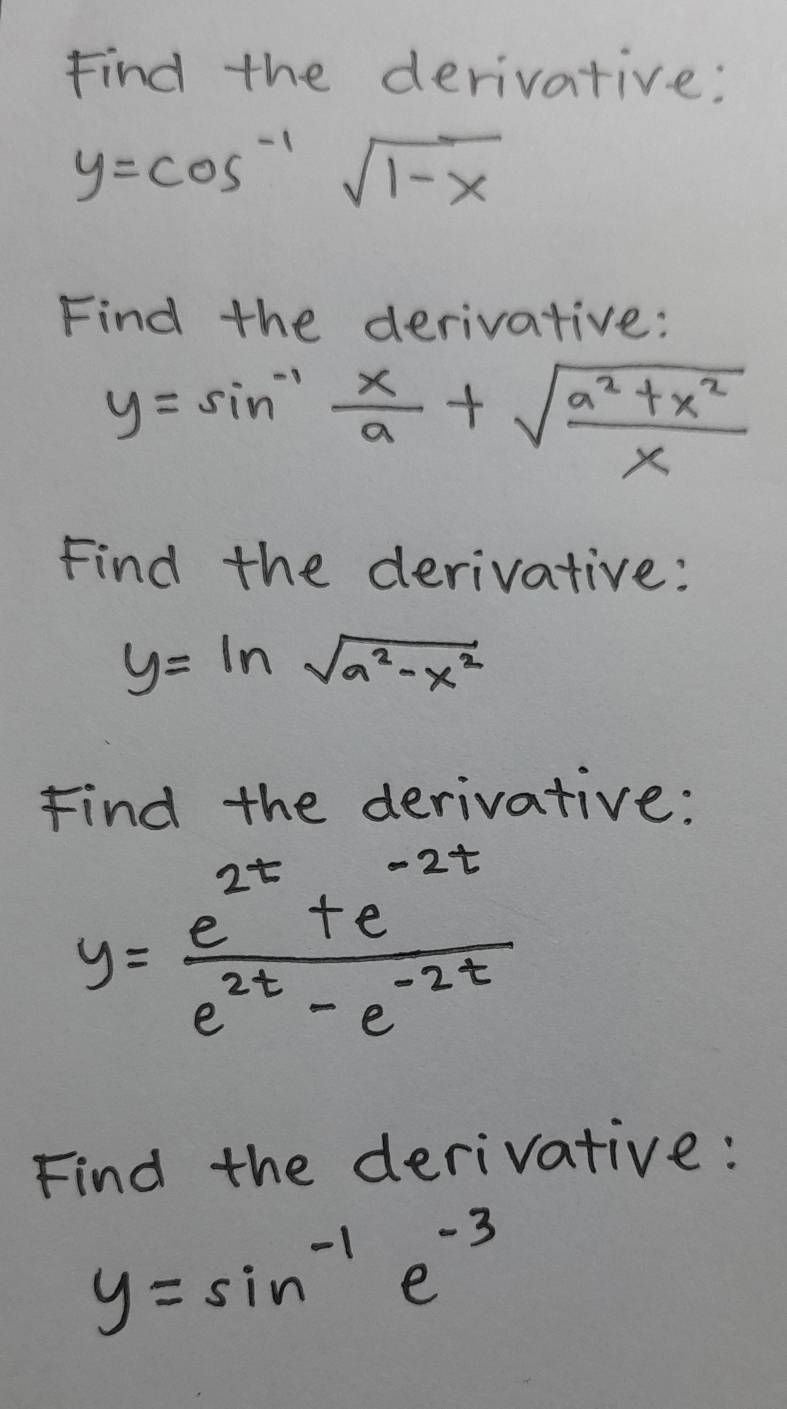 Find the derivative:
y=cos⁻¹ √(1-x)
Find the derivative:
y=sin⁻¹ x/a + √((a²+x²)/x)
Find the derivative:
y= ln √(a²-x²)
Find the derivative:
y= (e^(2t) + e^(-2t))/(e^(2t) - e^(-2t))
Find the derivative:
y=sin⁻¹ e⁻³